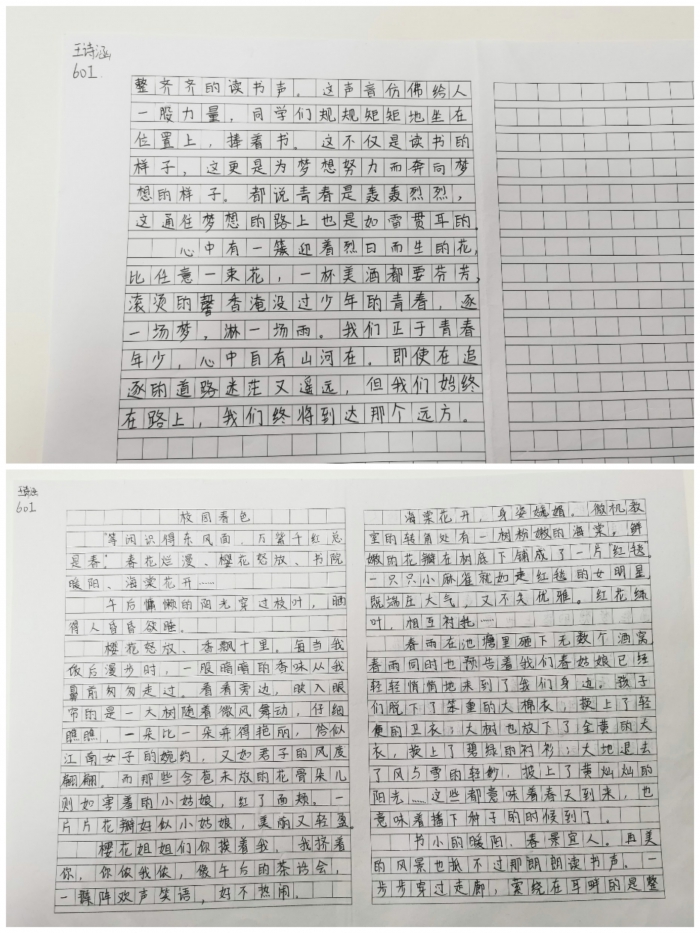 王诗涵
601
整齐齐的读书声。这声音仿佛给人
一股力量,同学们规规矩矩地坐在
位置上,捧着书。这不仅是读书的
样子,这更是为梦想努力而奔向梦
想的样子。都说青春是轰轰烈烈,
这通往梦想的路上也是如雷贯耳的。
心中有一簇迎着烈日而生的花,
比任意一束花,一杯美酒都要芬芳,
滚烫的馨香淹没过少年的青春,逐
一场梦,淋一场雨。我们正于青春
年少,心中自有山河在。即使在追
逐的道路迷茫又遥远,但我们始终
在路上,我们终将到达那个远方。
王诗涵
601
校园春色
“等闲识得东风面,万紫千红总
是春”春花烂漫、樱花怒放、书院
暖阳、海棠花开……
午后慵懒的阳光穿过枝叶,晒
得人昏昏欲睡。
樱花怒放、香飘十里。每当我
饭后漫步时,一股暗暗的香味从我
鼻前匆匆走过。看看旁边,映入眼
帘的是一大树随着微风舞动,仔细
瞧瞧,一朵比一朵开得艳丽,恰似
江南女子的婉约,又如君子的风度
翩翩。而那些含苞未放的花骨朵儿
则如害羞的小姑娘,红了面颊。一
片片花瓣好似小姑娘,美丽又轻盈。
樱花姐姐们你摸着我,我挤着
你,你做我做,像午后的茶话会,
一群阵欢声笑语,好不热闹。
海棠花开,身姿婉媚。微机教
室的转角处有一树粉嫩的海棠。鲜
嫩的花瓣在树底下铺成了一片“红毯”
一只只小麻雀就如走红毯的女明星,
既端庄大气,又不失优雅。红花绿
叶,相互衬托……
春雨在池塘里砸下无数个酒窝
春雨同时也预告着我们春姑娘已经
轻轻悄悄地来到了我们身边。孩子
们脱下了笨重的大棉衣,换上了轻
便的卫衣;大树也放下了金黄的大
衣,换上了碧绿的衬衫;大地退去
了风与雪的轻纱,披上了黄灿灿的
阳光……这些都意味着春天到来,也
意味着播下种子的时候到了。
书小的暖阳、春景宜人。再美
的风景也抵不过那朗朗读书声。一
步步穿过走廊,萦绕在耳畔的是整